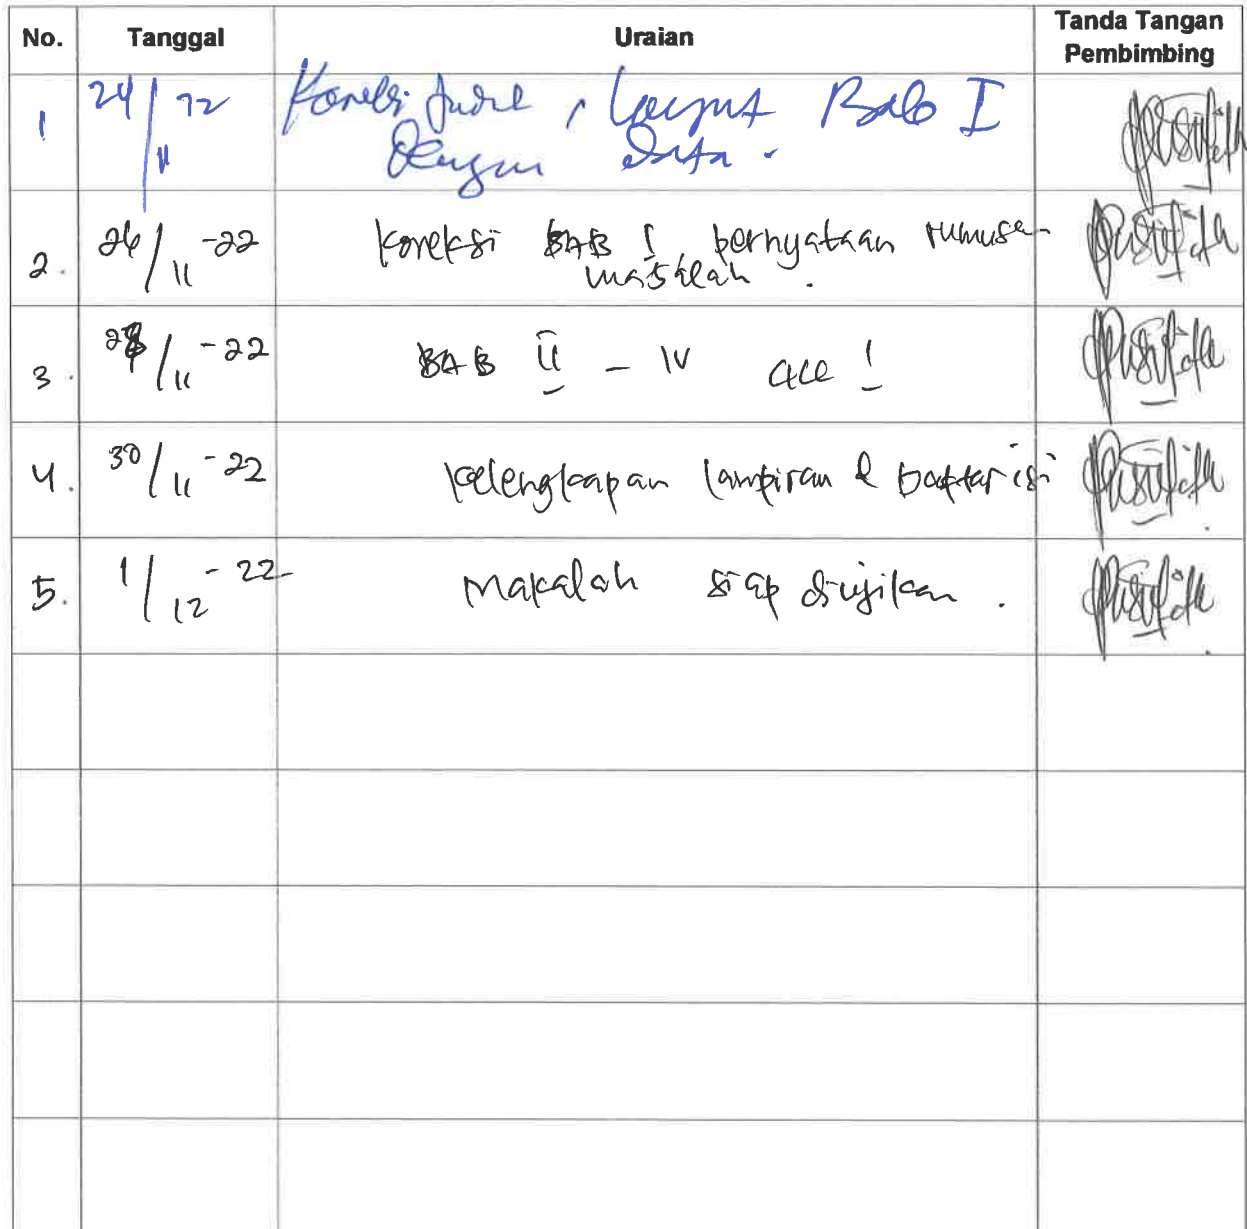 No. Tanggal Uraian Tanda Tangan Pembimbing
1 24/11 22 Koreksi Judul, lanjut Bab I
Dengan Data.
2. 26/11-22 Koreksi BAB I, pernyataan rumusan
masalah.
3. /11-22 BAB II - IV acc!
4. 30/11-22 Kelengkapan lampiran & Daftar isi
5. 1/12-22 Makalah siap diujikan.